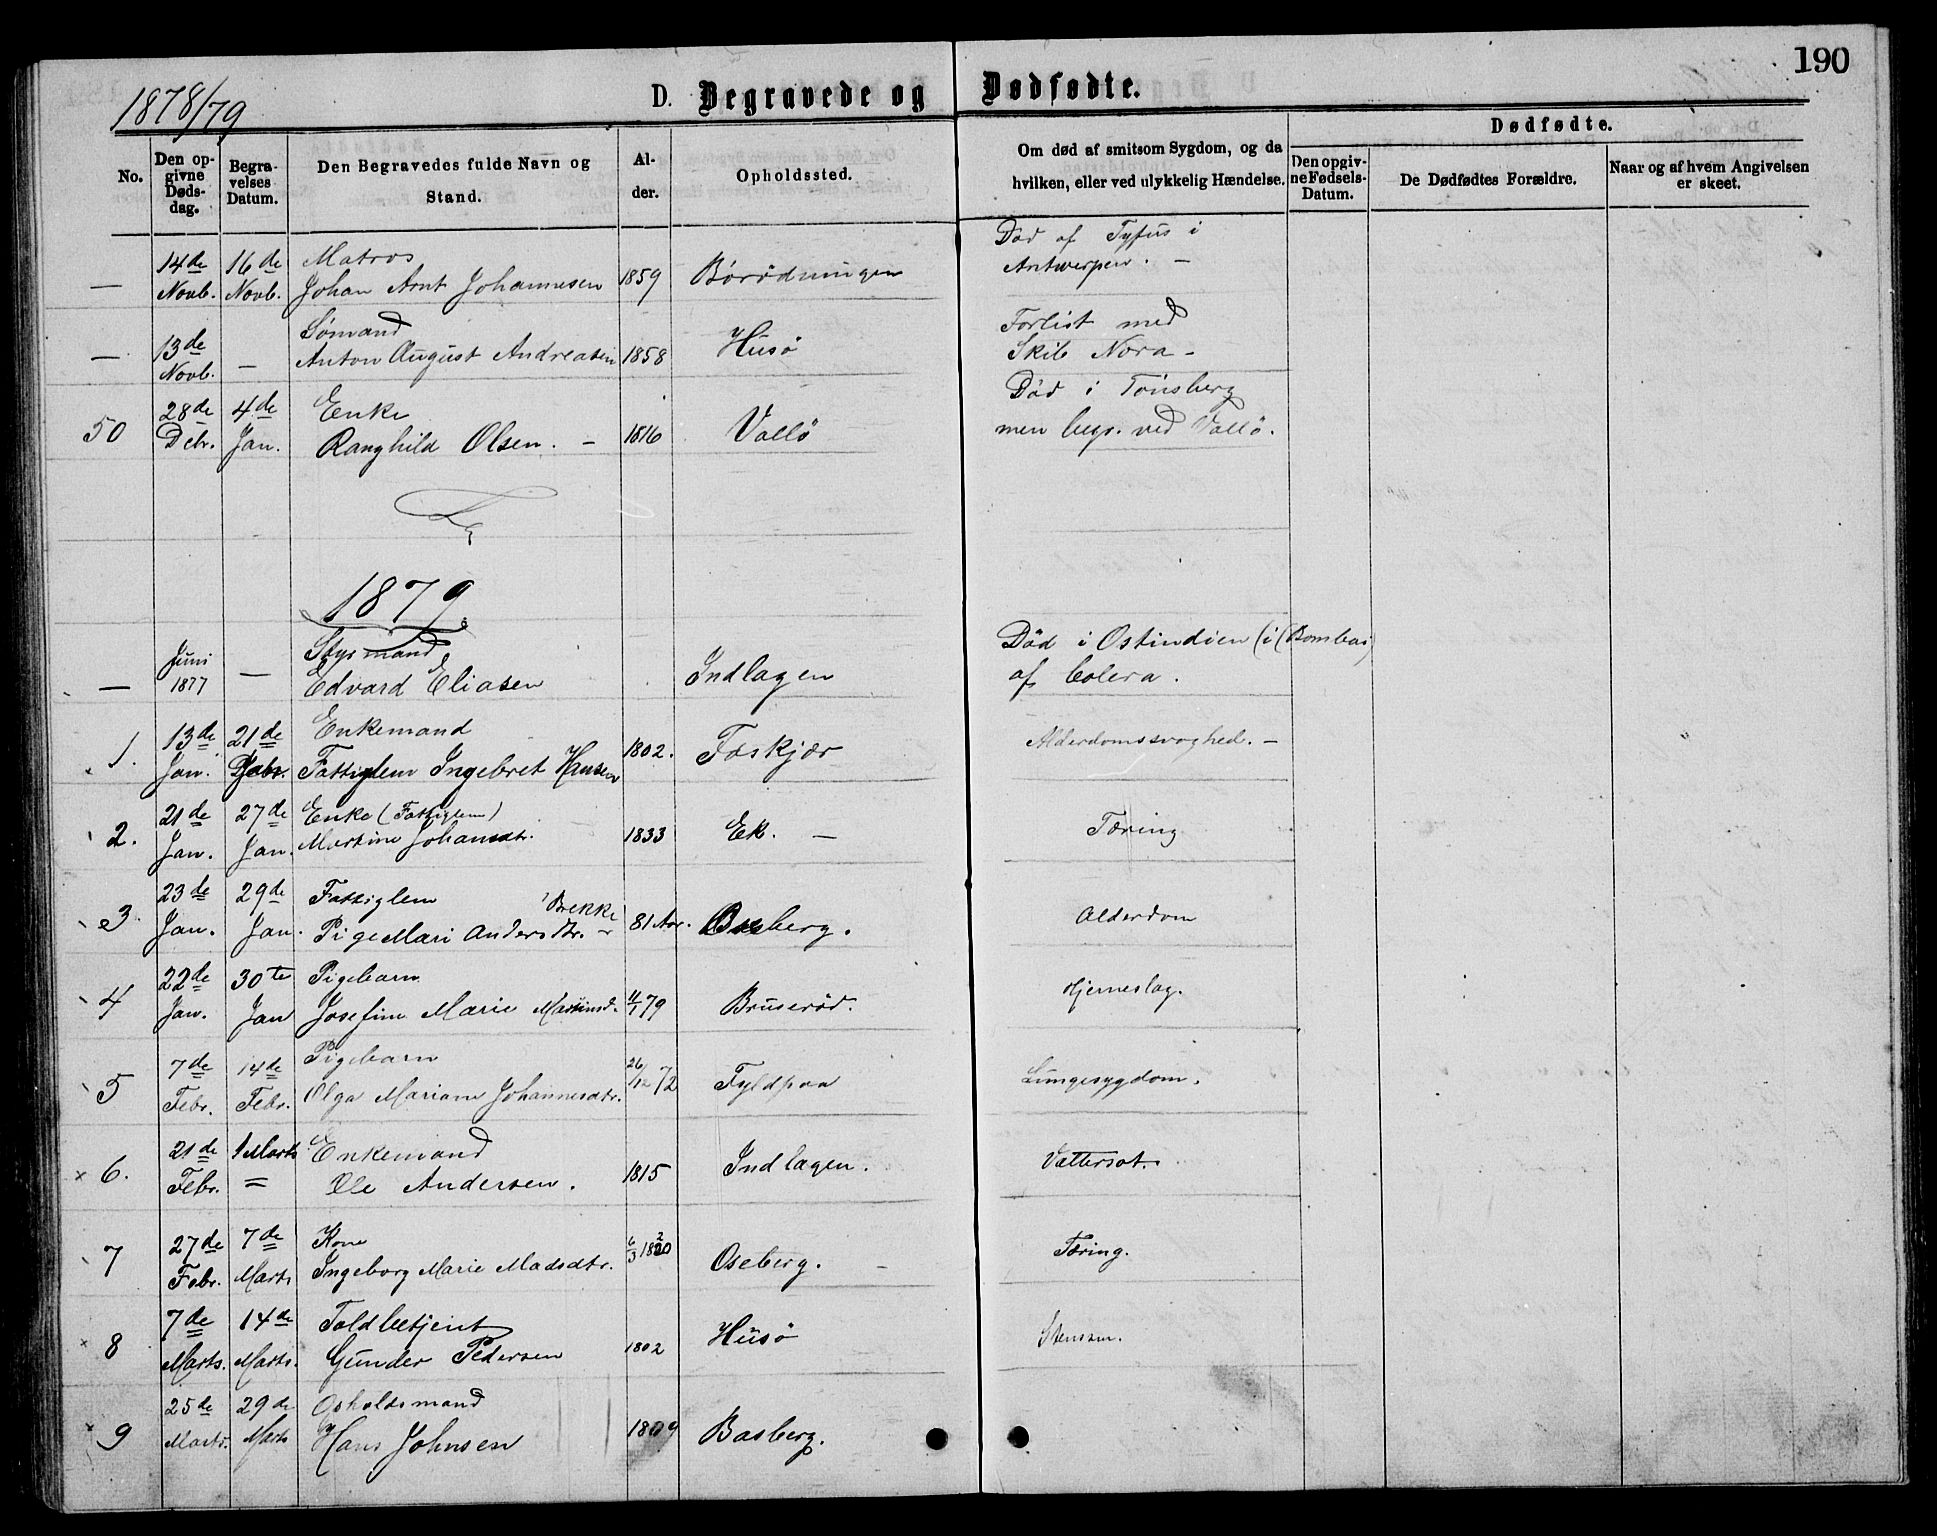 190
1878/79
D. Begravede og Dødfødte.
No.
Den op-
givne
Døds-
dag.
Begra-
velses
Datum.
Den Begravedes fulde Navn og
Stand.
Al-
der.
Opholdssted.
Om død af smitsom Sygdom, og da
hvilken, eller ved ulykkelig Hændelse.
Dødfødte.
Den opgiv-
ne Fødsels-
Datum.
De Dødfødtes Forældre.
Naar og af hvem Angivelsen
er skeet.
14de 16de Matros Død af Tyfus i
— Novb. Novb. Johan Arnt Johannesen 1859 Antwerpen. —
Sømand Forlist med
— 13de — Anton August Andreasen 1858 Husö Skib Nora —
Novb.
28de 4de Enke Död i Tönsberg
50 Debr. Jan. Ranghild Olsen. — 1816 Vallö men begr. ved Vallö.
1879.
Juni Styrmand Död i Ostindien (i (Bombai)
— 1877 — Edvard Eliasen Indlagen af Colera.
13de 21de Enkemand
1. Jan. Febr. Fattiglem Ingebret Hansen 1802. Faskjær Alderdomssvaghed. —
21de 27de Enke (Fattiglem)
2. Jan. Jan. Martine Johansdtr. 1833 Ek. — Tæring
23de 29de Fattiglem Brekke
3. Jan. Jan. Pige Mari Andersdtr. — 81 Aar. Oseberg. Alderdom
22de 30te Pigebarn
4 Jan. Jan Josefine Marie Martinsd. 11/1 79 Bruserød. Hjerneslag.
7de 14de Pigebarn
5 Febr. Febr. Olga Mariane Johannesdtr. 26/12 72 Fyldpaa Lungesygdom.
21de 1 Marts Enkemand
6. Febr. = Ole Andersen. 1815 Indlagen. Vattersot.
27de 7de Kone
7 Febr. Marts Ingeborg Marie Madsdtr. 6/3 1820 Oseberg. — Tæring.
7de 14de Toldbetjent
8 Marts. Marts. Gunder Pedersen 1802 Husö
25de 29de Opholdsmand
9 Marts. Marts Hans Johnsen 1809 Basberg.